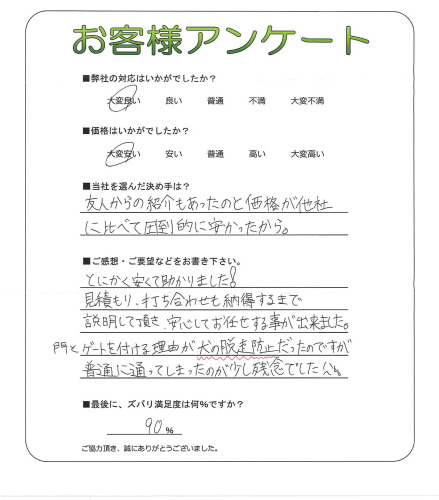 お客様アンケート
■弊社の対応はいかがでしたか?
大変良い 良い 普通 不満 大変不満
■価格はいかがでしたか?
大変安い 安い 普通 高い 大変高い
■当社を選んだ決め手は?
友人からの紹介もあったのと価格が他社
に比べて圧倒的に安かったから。
■ご感想・ご要望などをお書き下さい。
とにかく安くて助かりました!
見積もり、打ち合わせも納得するまで
説明して頂き、安心してお任せする事が出来ました。
門とゲートを付ける理由が犬の脱走防止だったのですが
普通に通ってしまったのが少し残念でした
■最後に、ズバリ満足度は何%ですか?
90 %
ご協力頂き、誠にありがとうございました。